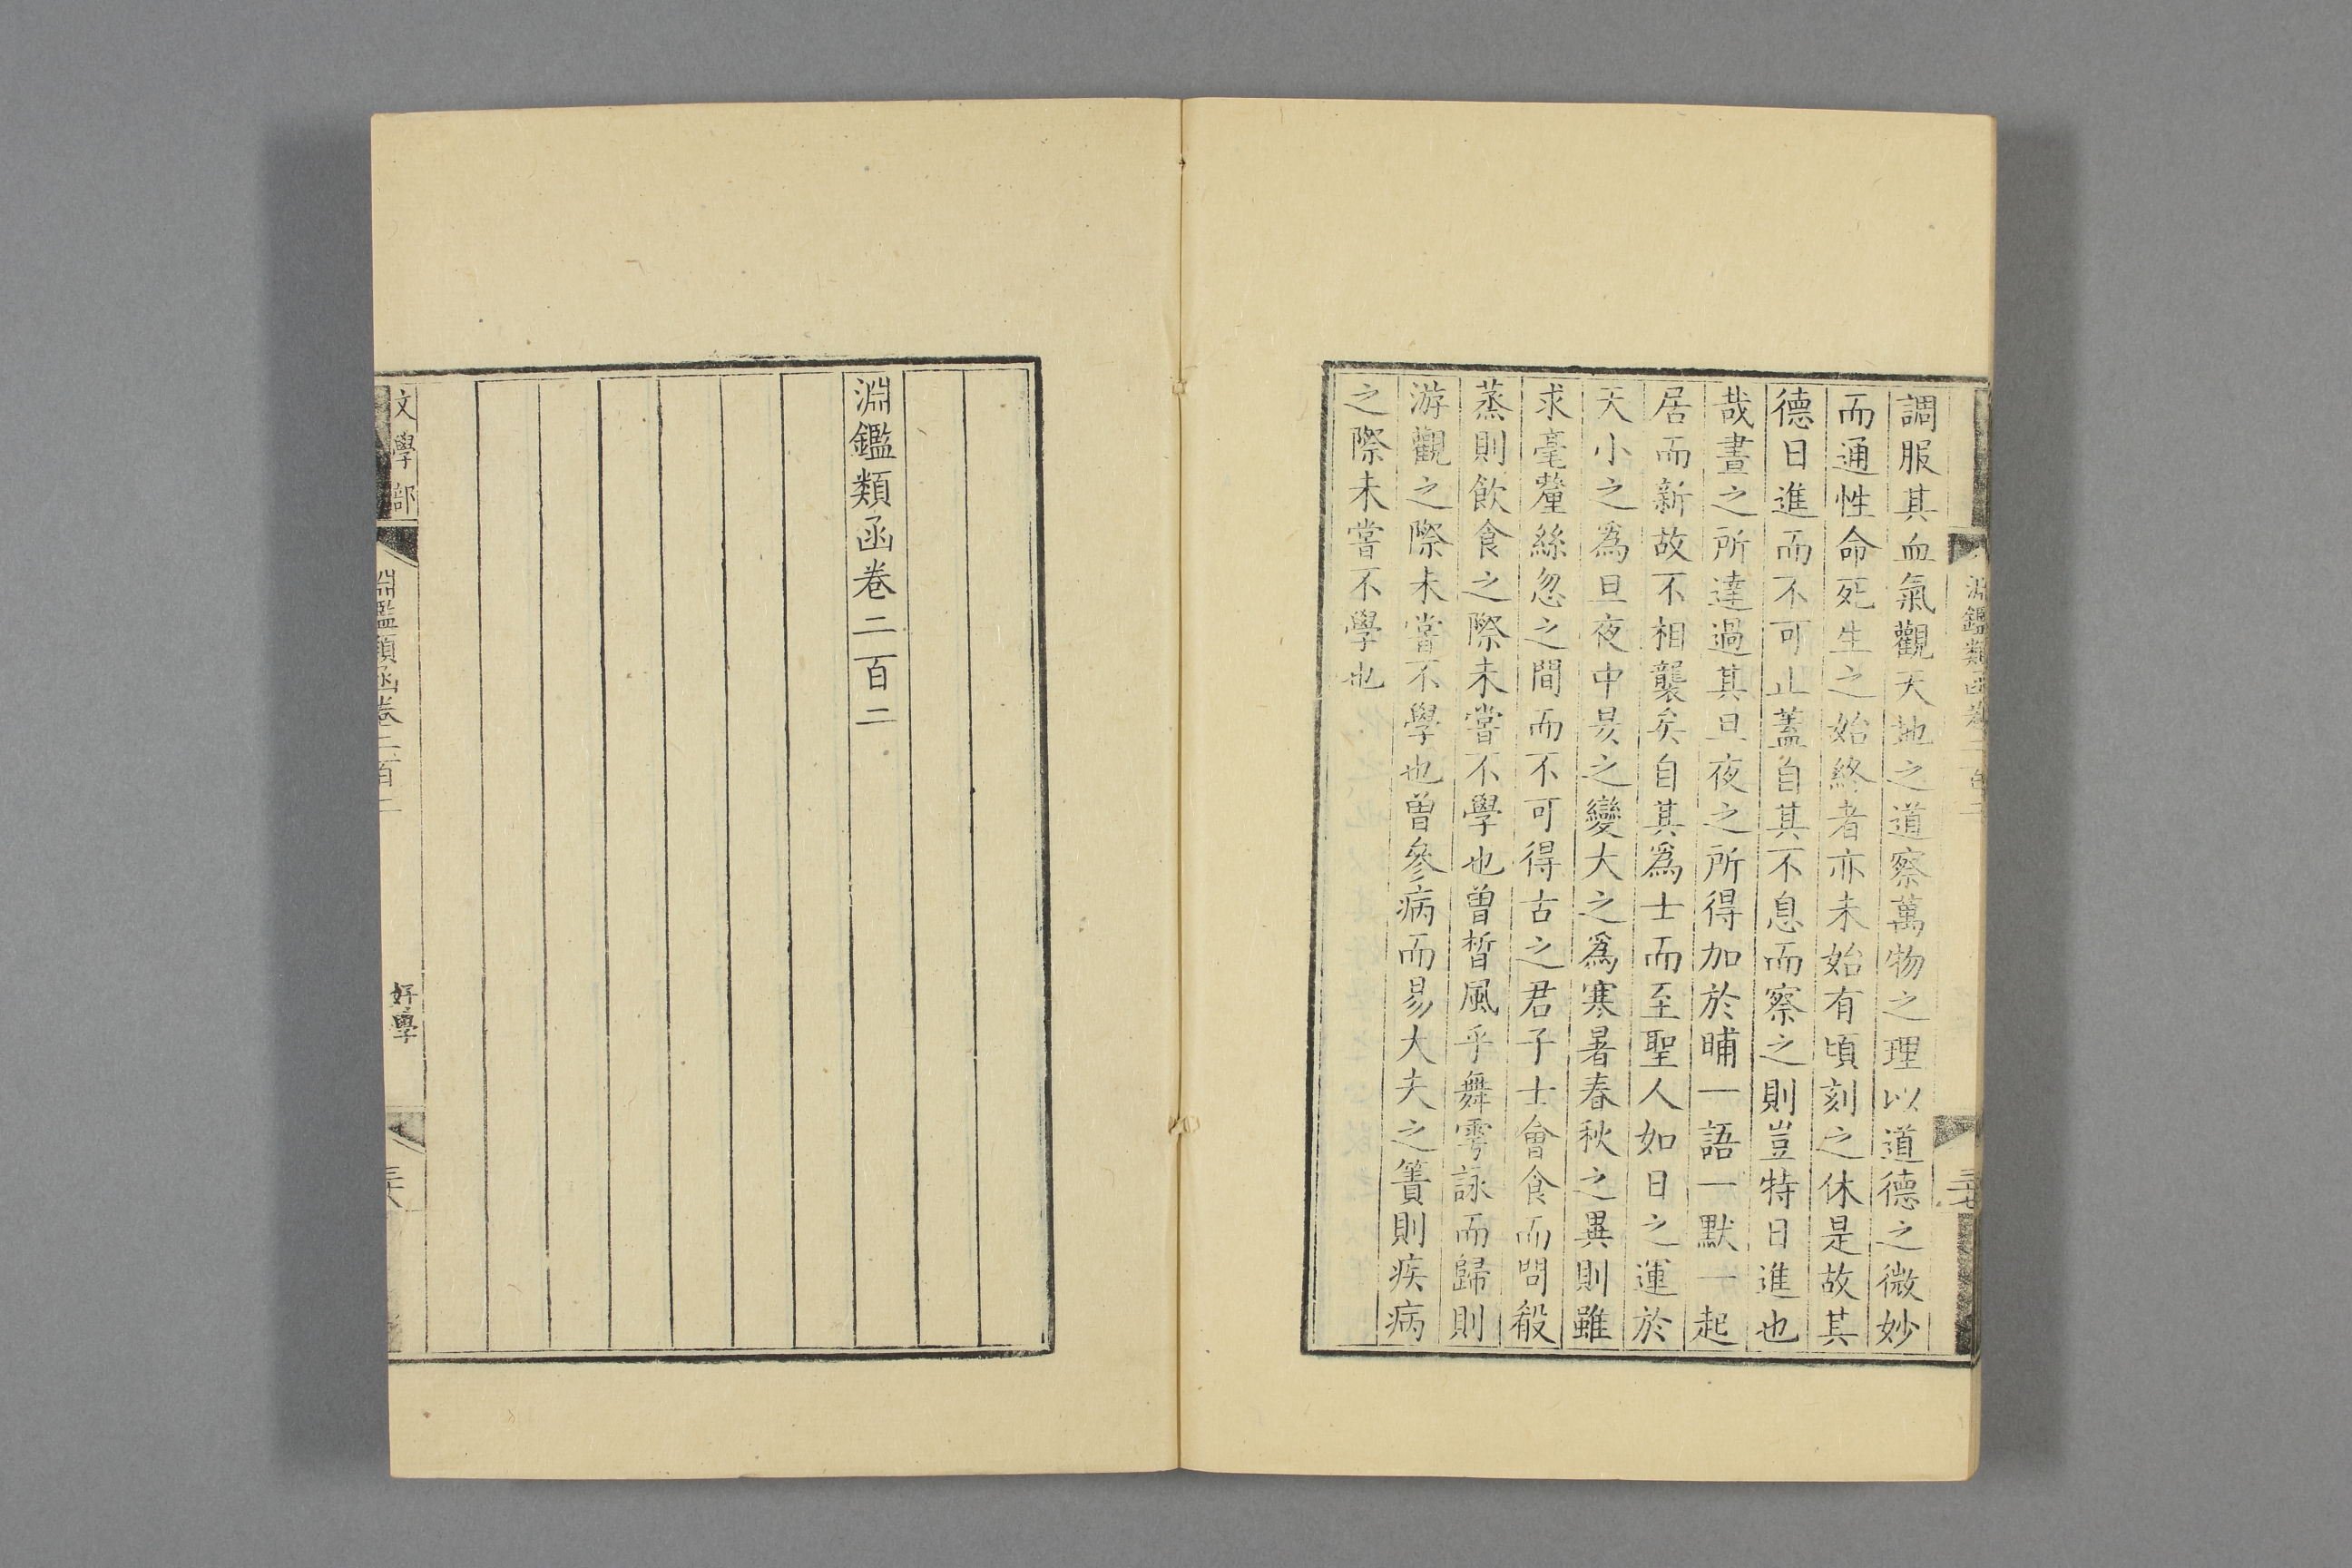 淵鑑類函卷二百二
調服其血氣觀天地之道察萬物之理以道德之微妙
而通性命死生之始終者亦未始有頃刻之休是故其
德日進而不可止蓋自其不息而察之則豈特日進也
哉晝之所達過其旦夜之所得加於晡一語一默一起
居而新故不相襲矣自其爲士而至聖人如日之運於
天小之爲旦夜中昃之變大之爲寒暑春秋之異則雖
求毫釐絲忽之間而不可得古之君子士會食而問殽
蒸則飲食之際未嘗不學也曾晳風乎舞雩詠而歸則
游觀之際未嘗不學也曾參病而易大夫之簀則疾病
之際未嘗不學也
淵鑑類函卷二百二
文學部
淵鑑類函卷二百二
好學
三十八